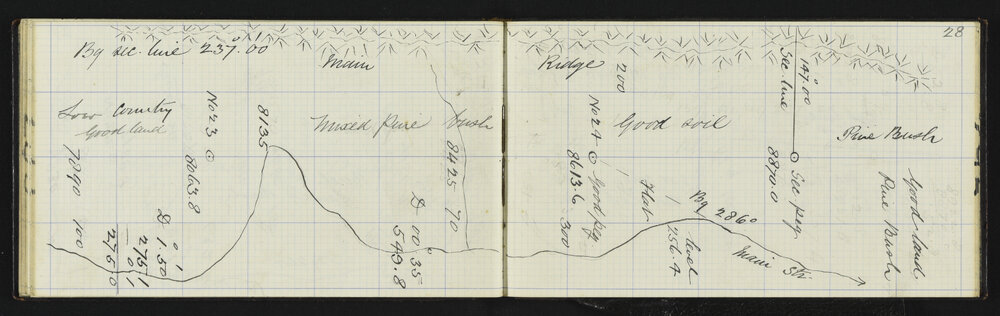 28
Bg sec. line 237°.0'0
Main
Ridge
Low Country
Good land
7890
100
No 23
8063.8
8135
Mixed pine bush
D
1°.50'
275.1
0.1
275.0
8425
70
D 00°.35'
549.8
200
No 24 Good peg
8613.6
300
Good soil
Flat
Bg 286°
level
256.4
Main Str
147°.00
Sec. line
Sec peg
8870.0
Pine Bush
Good land
Pine Bush